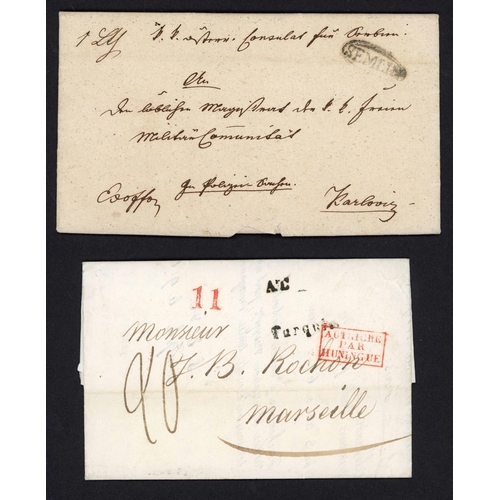 k. k. österr. Consulat für Serbien
SEMLIN
An
Den löblichen Magistrat der k. k. Freien
Militär Communität
In Polizei Sachen.
Karlovitz
11
AT
Turquie
AUTRICHE
PAR
HUNINGUE
Monsieur
J. B. Rochon
20
Marseille